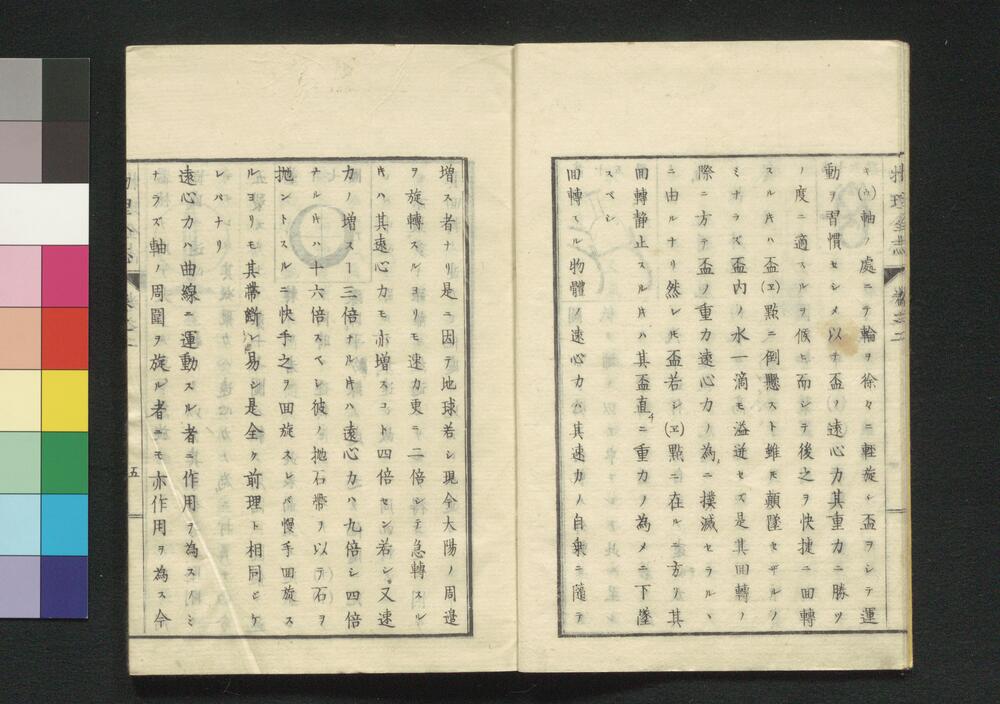 キ(ウ)軸ノ處ニテ輪ヲ徐々ニ軽旋シ盃ヲシテ運
動ヲ習慣セシメ以テ盃ノ遠心力其重力ニ勝ツ
ノ度ニ適スルヲ候ヒ而シテ後之ヲ快捷ニ回轉
スル𪜈ハ盃(ヱ)點ニ倒懸スト雖𪜈顛墜セザルノ
ミナラズ盃内ノ水一滴モ溢逬セズ是其回轉ノ
際ニ方テ盃ノ重力遠心力ノ為ニ撲滅セラルヽ
ニ由ルナリ然レ𪜈盃若シ(ヱ)點ニ在ルニ方リ其
回轉静止スル𪜈ハ其盃直ニ重力ノ為メニ下墜
スベシ
回轉スル物體ノ遠心力ハ其速力ノ自乗ニ隨テ
増ス者ナリ是ニ因テ地球若シ現今大陽ノ周邉
ヲ旋轉スルヨリモ速力更ニ二倍シテ急轉スル
𪜈ハ其遠心力モ亦増スコト四倍セン若シ又速
力ノ増スヿ三倍ナル𪜈ハ遠心力ハ九倍シ四倍
ナル𪜈ハ十六倍スベシ彼ノ抛石帶ヲ以テ石ヲ
抛ントスルニ快手之ヲ回旋スレバ慢手回旋ス
ルヨリモ其帶断レ易シ是全ク前理ト相同ヒケ
レバナリ
遠心力ハ曲線ニ運動スル者ニ作用ヲ為スノミ
ナラズ軸ノ周圍ヲ旋ル者ニモ亦作用ヲ為ス今
五